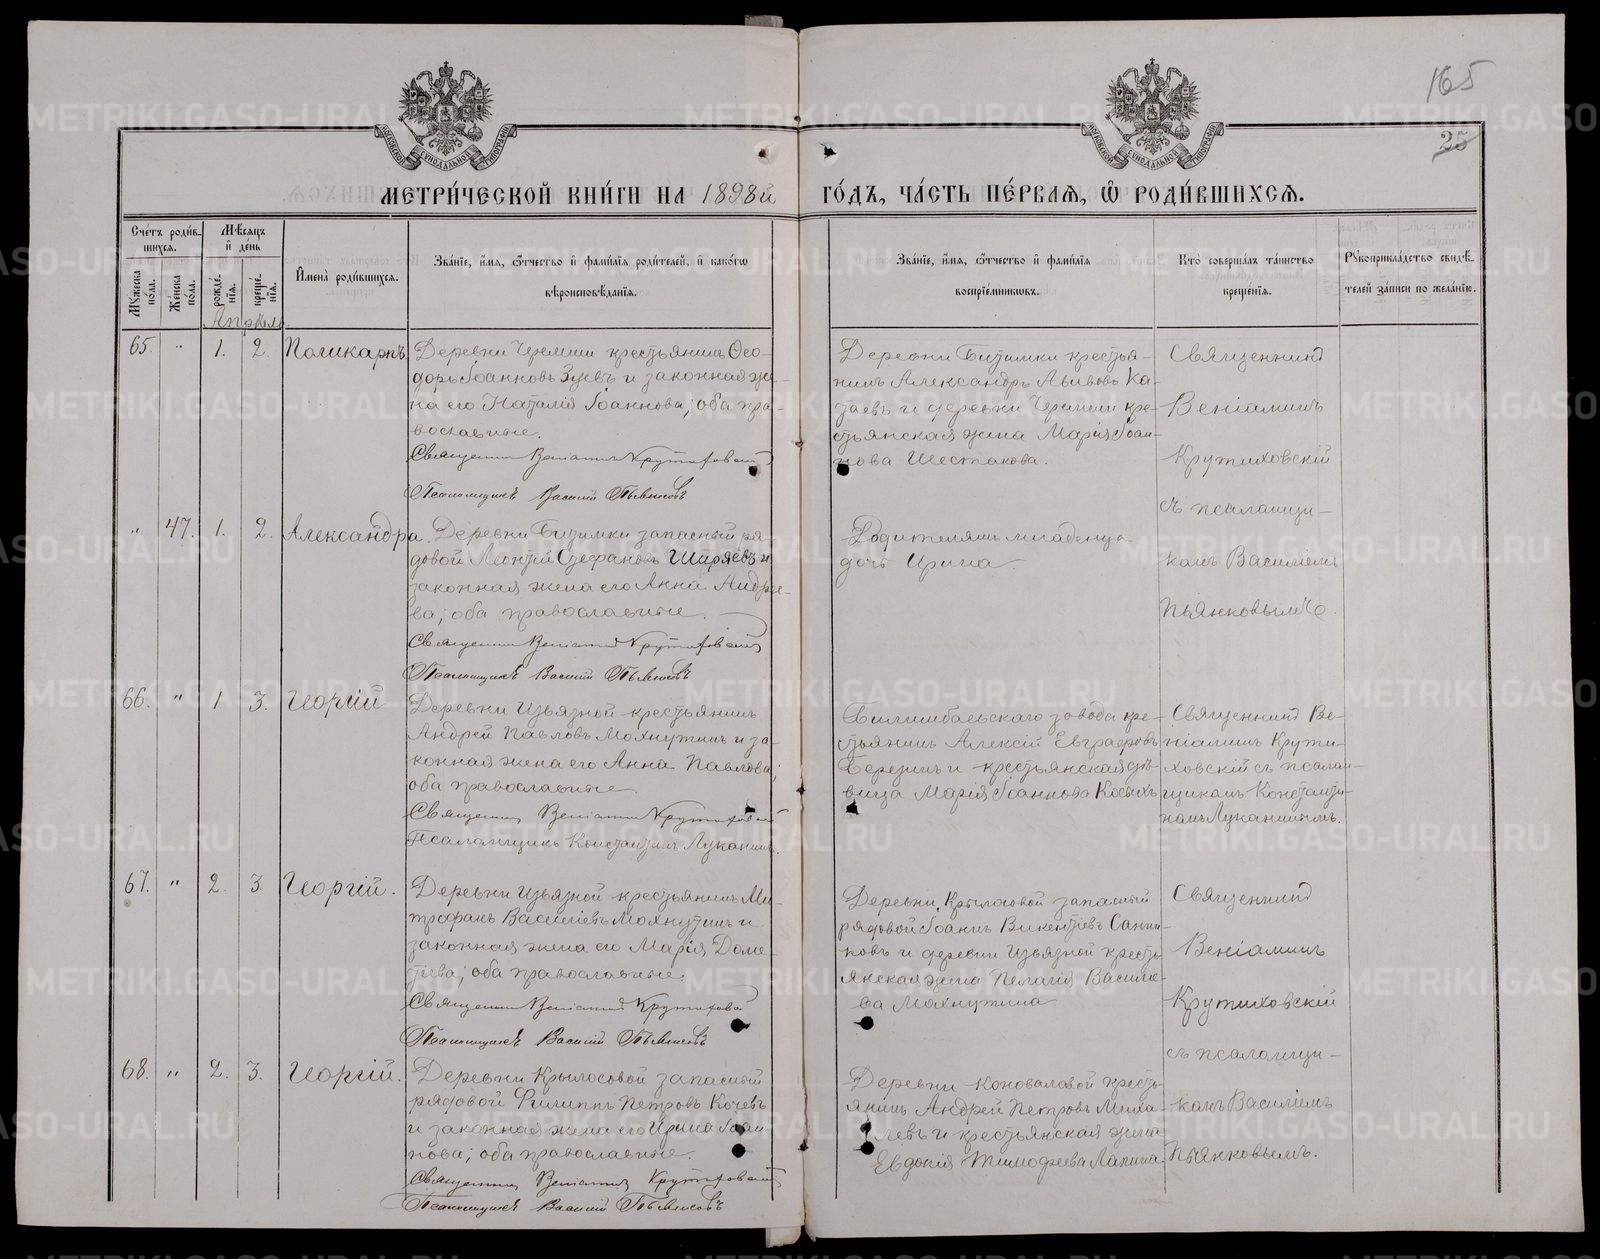 165
25
МЕТРИ́ЧЕСКОЙ КНИ́ГИ НА 1898й ГО́ДЪ, ЧА́СТЬ ПЕ́РВАѦ, Ѡ РОДИ́ВШИХСѦ.
Сче́тъ роди́в-
шихсѧ.
Мѣ́сяцъ
и де́нь
Мꙋжеска по́ла.
Же́нска по́ла.
рожде́нїѧ.
креще́нїѧ.
Имена̀ роди́вшихсѧ.
Зва́нїе, и́мѧ, ѻ́тчество и фами́лїѧ роди́телей, и како́гѡ
вѣроисповѣ́данїѧ.
Зва́нїе, и́мѧ, ѻ́тчество и фами́лїѧ
воспрїе́мниковъ.
Кто̀ соверша́лъ та́инство
креще́нїѧ.
Рꙋкоприкла́дство свидѣ́-
телей за́писи по жела́нїю.
Апрѣль
65. " 1. 2. Поликарпъ
Деревни Черемши крестьянинъ Ѳео-
доръ Іоанновъ Зуевъ и законная же-
на его Наталія Іоаннова; оба пра-
вославные.
Священникъ Веніаминъ Крутиховскій
Псаломщикъ Василій Пьянковъ
Деревни Битимки крестья-
нинъ Александръ Львовъ Ка-
таевъ и деревни Черемши кре-
стьянская жена Марія Іоан-
нова Шестакова.
Священникъ
Веніаминъ
Крутиховскій
съ псаломщи-
комъ Василіемъ
Пьянковымъ.
" 47. 1. 2. Александра.
Деревни Битимки запасный ря-
довой Леонтій Стефановъ Ширяевъ и
законная жена его Анна Андре-
ева; оба православные.
Священникъ Веніаминъ Крутиховскій
Псаломщикъ Василій Пьянковъ
Родителямъ младенца
дочь Ирина
66. " 1. 3. Георгій
Деревни Извязной крестьянинъ
Андрей Павловъ Мохнуткинъ и за-
конная жена его Анна Павлова;
оба православные.
Священникъ Веніаминъ Крутиховскій
Псаломщикъ Константинъ Луканинъ.
Билимбаевскаго завода кре-
стьянинъ Алексій Евграфовъ
Березинъ и крестьянская дѣ-
вица Марія Іоаннова Косыхъ
Священникъ Ве-
ніаминъ Крути-
ховскій съ псалом-
щикомъ Константи-
номъ Луканинымъ.
67. " 2. 3. Георгій.
Деревни Извязной крестьянинъ Ми-
трофанъ Василіевъ Мохнуткинъ и
законная жена его Марія Доме-
тіева; оба православные.
Священникъ Веніаминъ Крутиховскій
Псаломщикъ Василій Пьянковъ
Деревни Крылосовой запасный
рядовой Іоаннъ Викентіевъ Санни-
ковъ и деревни Извязной кресть-
янская жена Пелагія Василіе-
ва Мохнуткина
Священникъ
Веніаминъ
Крутиховскій
съ псаломщи-
комъ Василіемъ
Пьянковымъ.
68. " 2. 3. Георгій.
Деревни Крылосовой запасный
рядовой Филиппъ Петровъ Кочевъ
и законная жена его Ирина Іоан-
нова; оба православные.
Священникъ Веніаминъ Крутиховскій
Псаломщикъ Василій Пьянковъ
Деревни Коноваловой кресть-
янинъ Андрей Петровъ Миха-
левъ и крестьянская жена
Евдокія Тимофеева Лапина